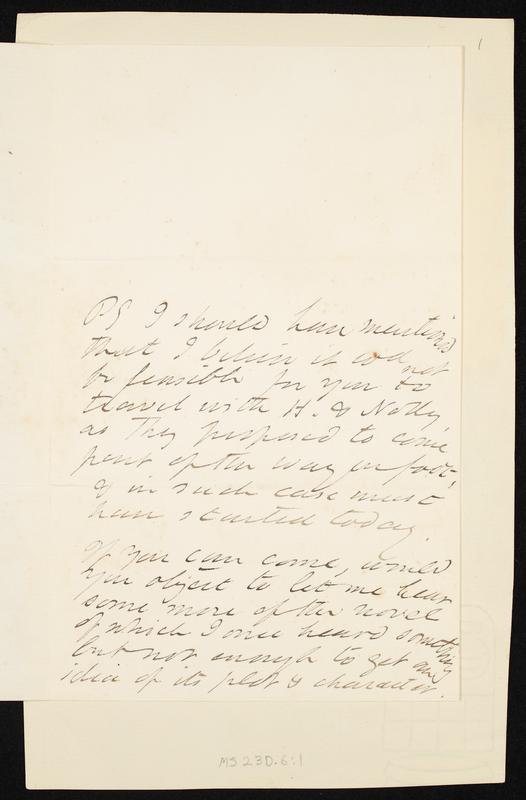 1
PS I should have mentiond
that I believe it cod not
be feasible for you to
travel with H. & Notley
as they proposed to come
part of the way on foot,
& in such case must
have started today.
If you can come, would
you object to let me hear
some more of the novel
of which I once heard something
but not enough to get an
idea of its plot & character.
MS 23D.6:1